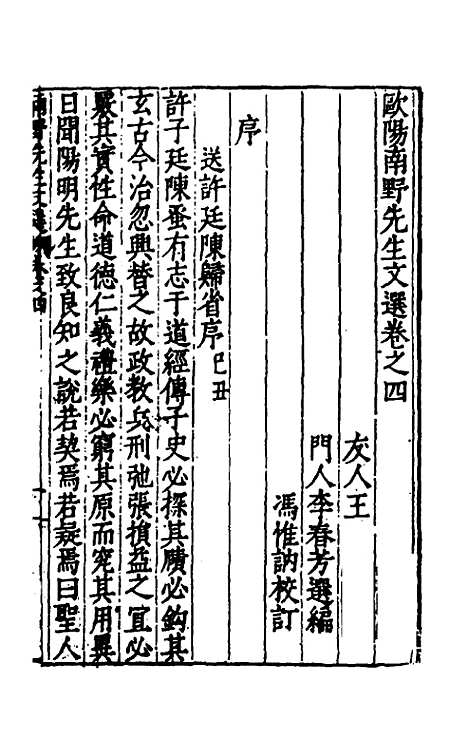 歐陽南野先生文選卷之四
友人王
門人李春芳選編
馮惟訥校訂
序
送許廷陳歸省序己丑
許子廷陳蚤有志于道經傳子史必探其賾必鈎其
玄古今治忽興替之故政教兵刑弛張損益之宜必
覈其實性命道德仁義禮樂必窮其原而究其用異
日聞陽明先生致良知之說若契焉若疑焉曰聖人
南野先生文選 卷之四